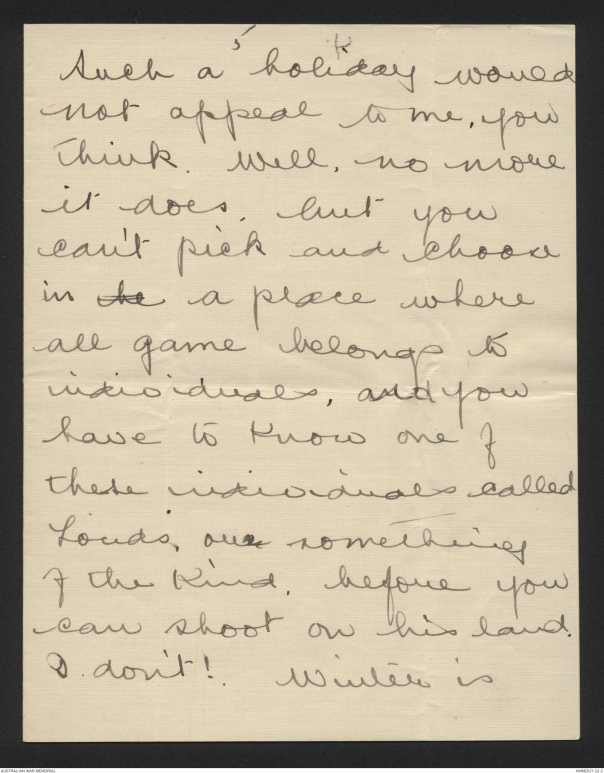 5
Such a holiday would
not appeal to me, you
think. Well, no more
it does, but you
can't pick and choose
in the a place where
all game belongs to
individuals, and you
have to know one of
these individuals called
Lords, or something
of the kind, before you
can shoot on his land.
I don't! Winter is
AUSTRALIAN WAR MEMORIAL